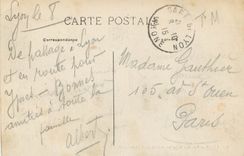 Lyon le 8
CARTE POSTALE
Correspondance
De passage à Lyon
et en route pour
Ypres. Bonnes
amitiés à toute la
famille
Albert
Madame Gauthier
105, av. St Ouen
Paris
F M